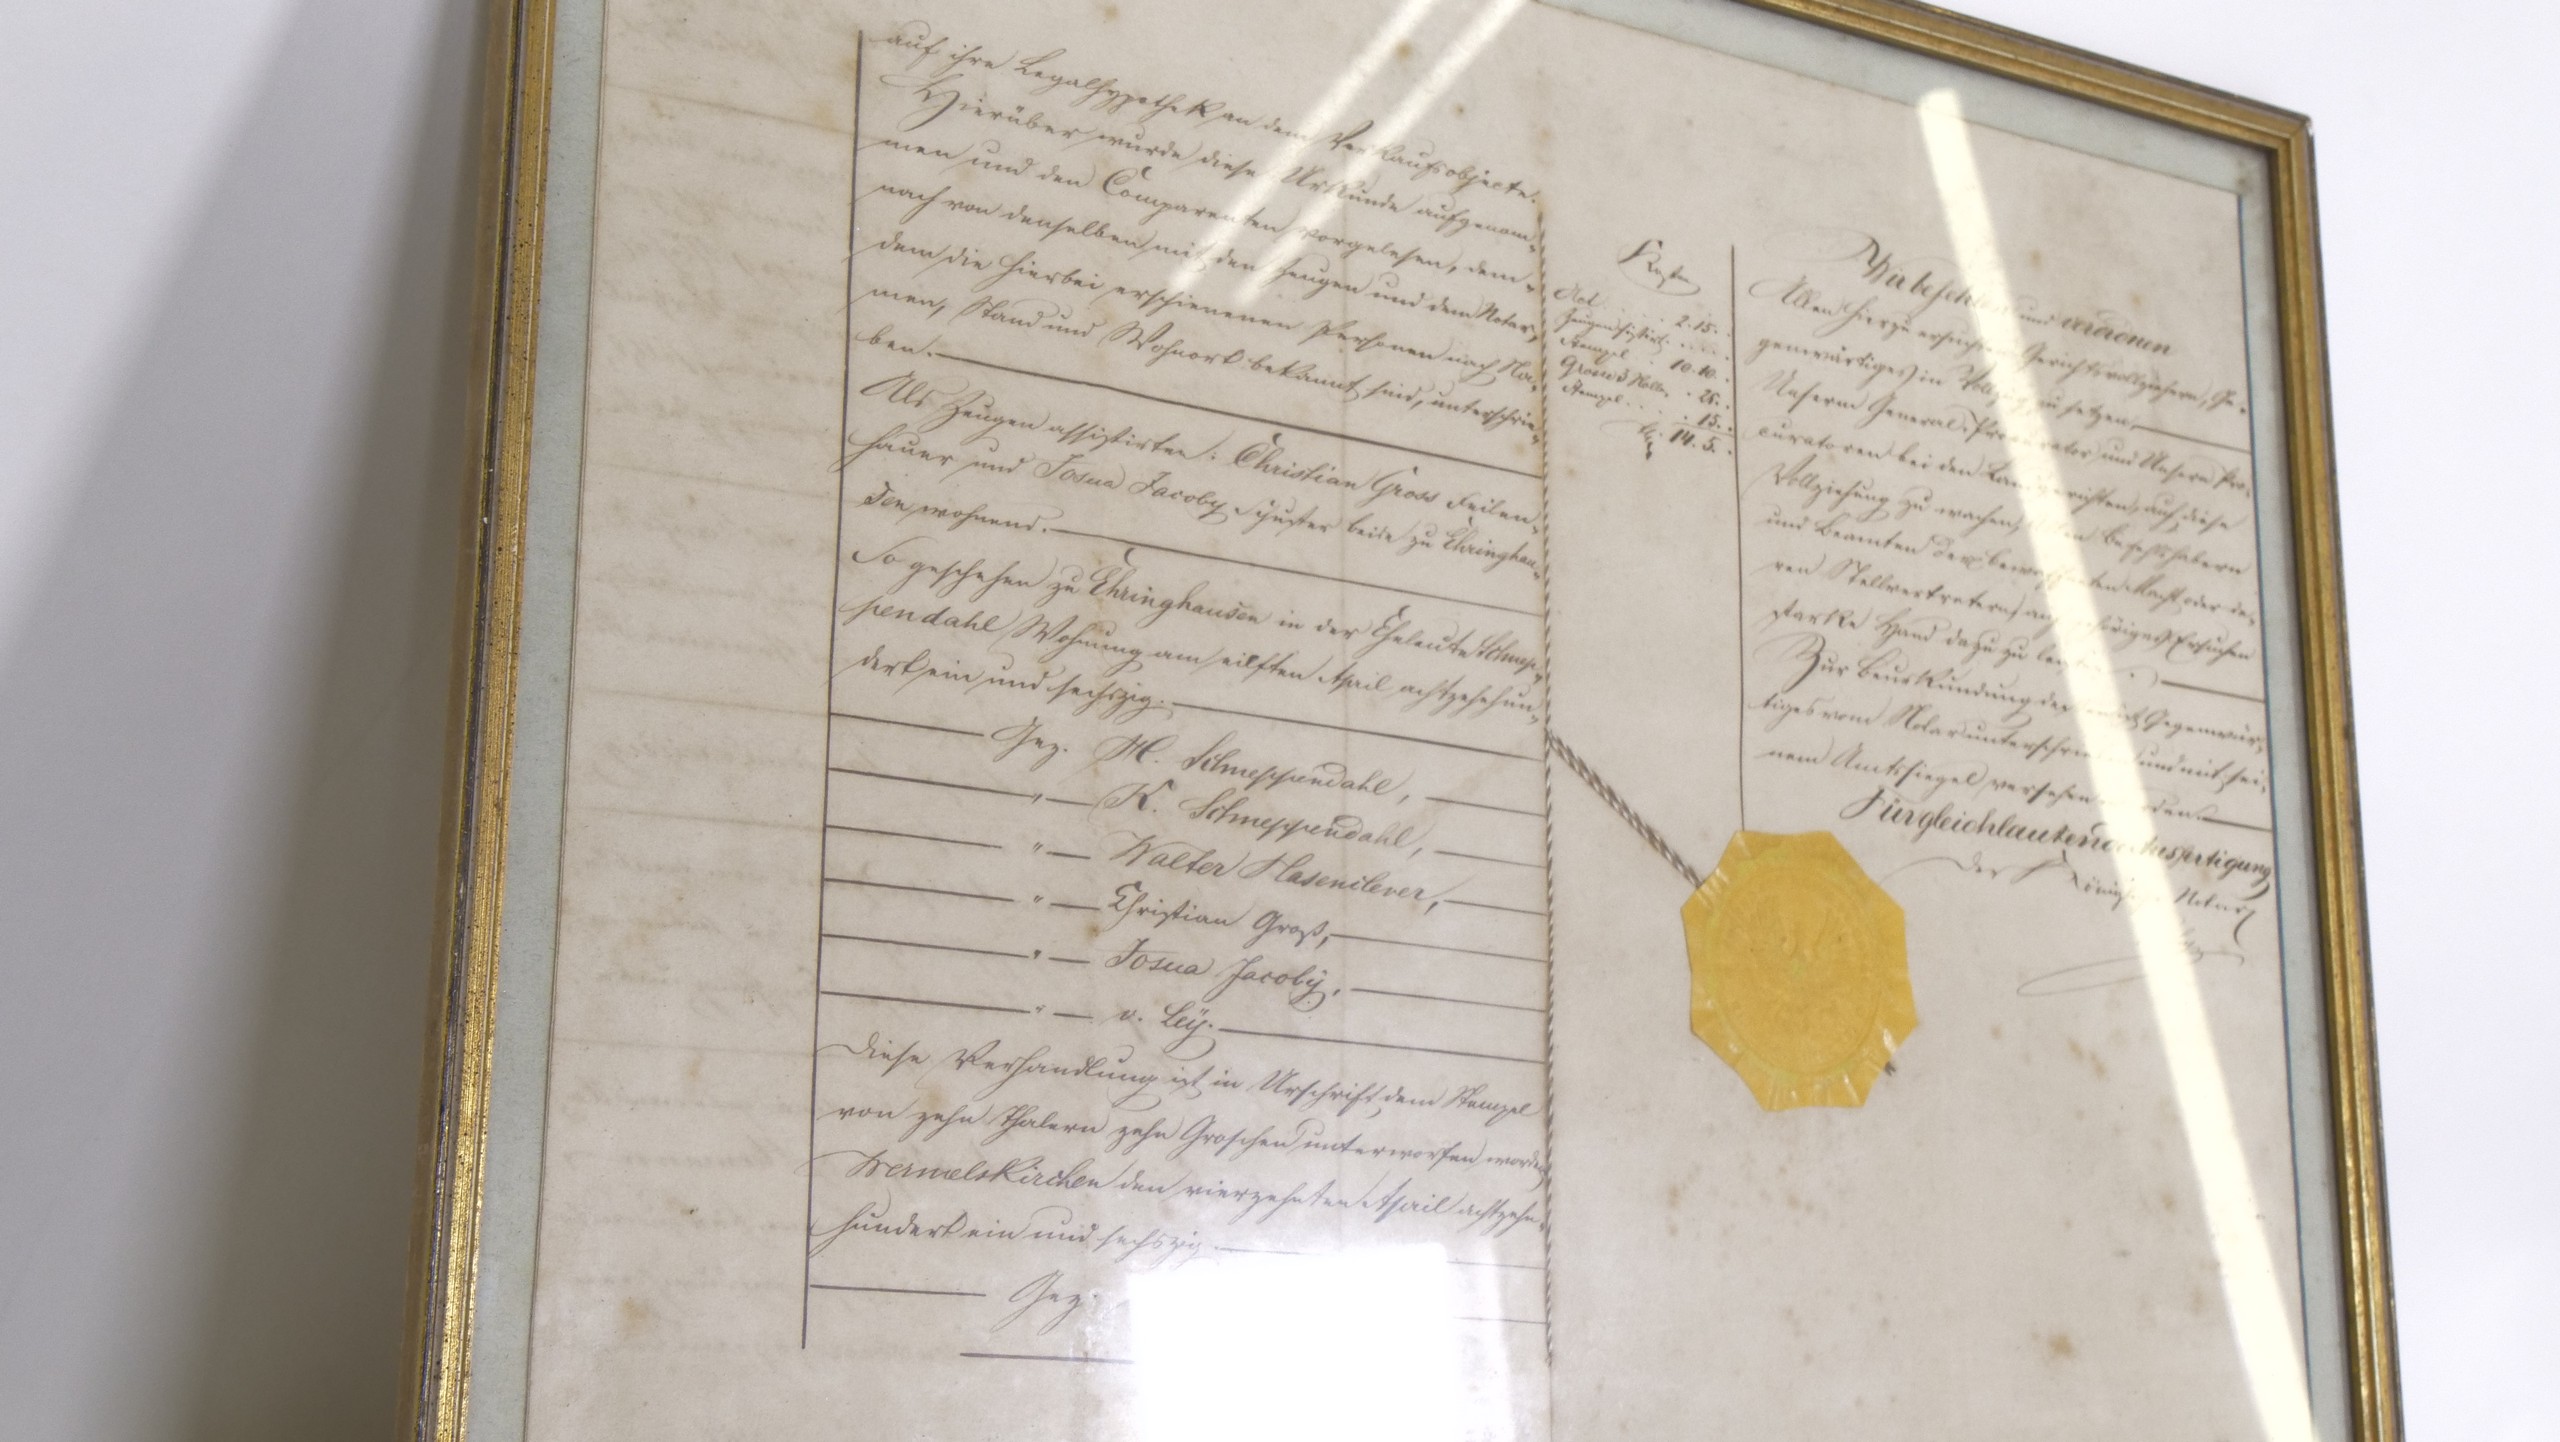 auf ihre Legalhypothek an dem Verkaufsobjecte.
Hierüber wurde diese Urkunde aufgenom-
men und den Comparenten vorgelesen, dem-
nach von denselben mit den Zeugen und dem Notar,
dem die hierbei erschienenen Personen nach Na-
men, Stand und Wohnort bekannt sind, unterschrie-
ben.
Als Zeugen assistirten: Christian Gross Feilen-
hauer und Josua Jacoby Schuster beide zu Ehringhau-
sen wohnend.
So geschehen zu Ehringhausen in der Eheleute Schnep-
pendahl Wohnung am eilften April achtzehnhun-
dert ein und sechszig.
Gez. M. Schneppendahl,
" K. Schneppendahl,
" Walter Hasenclever,
" Christian Groß,
" Josua Jacoby,
" v. Ley.
Diese Verhandlung ist in Urschrift dem Stempel
von zehn Thalern zehn Groschen unterworfen worden
Wermelskirchen den vierzehnten April achtzehn-
hundert ein und sechszig.
Gez.
Kosten
Act . . . 2. 15.
Zeugen . . . .
Stempel . 10. 10.
Grosse 3 Rollen . 25.
Stempel . . . 15.
14. 5.
Wir befehlen und verordnen
Allen hierzu ersuchten Gerichtsvollziehern, Ge-
genwärtiges in Vollzug zu setzen,
Unserm General-Procurator und Unsern Pro-
curatoren bei den Landgerichten, auf diese
Vollziehung zu wachen, Befehlshabern
und Beamten der bewaffneten Macht oder de-
ren Stellvertretern auf gehöriges Ersuchen
starke Hand dazu zu leisten.
Zur Beurkundung dessen ist Gegenwär-
tiges vom Notar unterschrieben und mit sei-
nem Amtssiegel versehen worden.
Für gleichlautende Ausfertigung
Der Königliche Notar